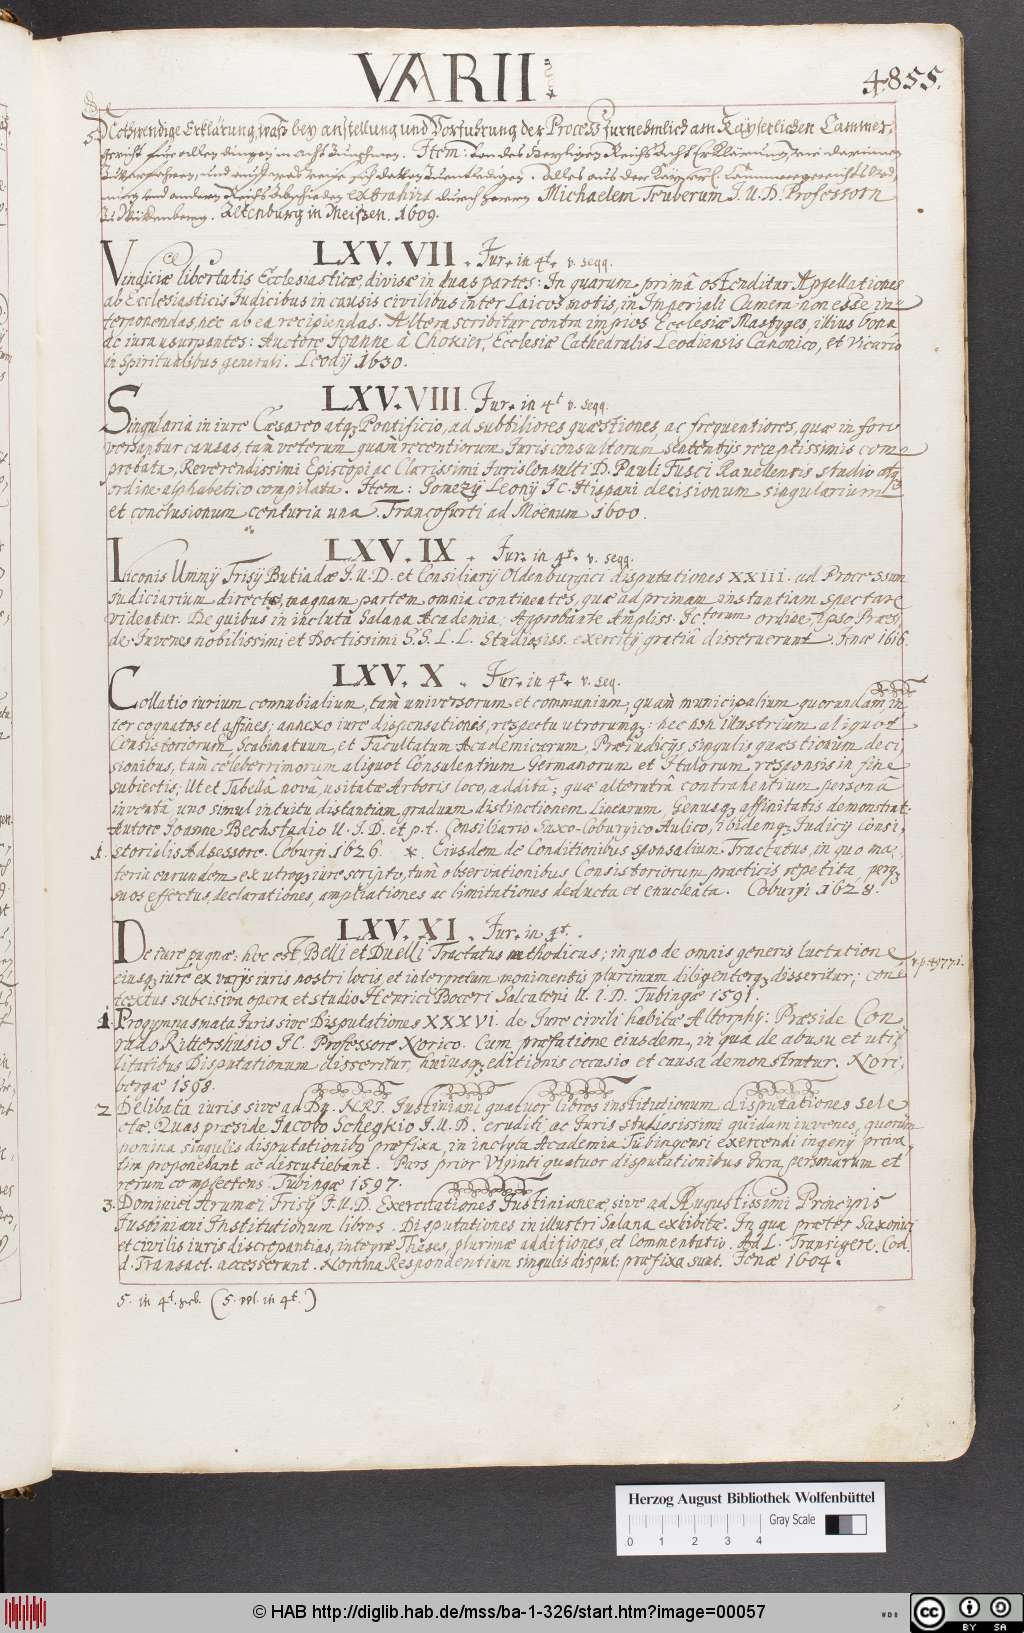 VARII:
4855.
5
Nothwendige Erklärung, waß bey anstellung und Vorfuhrung der Process furnehmlich am Kayserlichen Cammer,
gericht für allen dingen in acht Zunehmen. Item: Von des Heyligen Reichs Acht Erklärung, wie darinnen
Zuverfahren, und auß
Alles aus der Kayserl. Cammergerichts Ord,
nung und andern Reichs Abschieden extrahirt durch Herrn Michaelem Teuberum I. U. D. Professorn
zu Wittenberg. Altenburg in Meißen. 1609.
LXV. VII. Jur. in 4t. v. seqq.
Vindiciæ libertatis Ecclesiasticæ, divisæ in duas partes: In quarum primâ ostenditur Appellationes
ab Ecclesiasticis Iudicibus in causis civilibus inter Laicos motis, in Imperiali Camera non esse in
terponendas, nec ab ea recipiendas. Altera scribitur contra impios Ecclesiæ Mastyges, illius bona
ac iura usurpantes: Auctore Ioanne à Chokier, Ecclesiæ Cathedralis Leodiensis Canonico, et Vicario
in Spiritualibus generali. Leodij 1630.
LXV. VIII. Jur. in 4t v. seqq.
Singularia in iure Cæsareo atq; Pontificio, ad subtiliores quæstiones, ac frequentiores, quæ in foro
versantur causas, tàm veterum quàm recentiorum Iurisconsultorum sententijs receptissimis com
probata, Reverendissimi Episcopi ac Clarissimi JurisConsulti D. Pauli Fusci Ravellensis studio atq;
ordine alphabetico compilata. Item: Gomezij Leonij JC. Hispani decisionum singularium
et conclusionum centuria una. Francofurti ad Moenum 1600.
LXV. IX. Jur. in 4t. v. seqq.
Iliconis Ummij Frisij Butiadæ I. U. D. et Consiliarij Oldenburgici disputationes XXIII. ad Processum
Iudiciarium directæ, magnam partem omnia continentes, quæ ad primam instantiam spectare
videntur. De quibus in incluta Salana Academia, Approbante Ampliss. JCtorum ordine, ipso Præsi,
de Juvenes nobilissimi et Doctissimi S. S. L. L. Studiosiss. exercitij gratia disseruerunt. Jenæ 1616.
LXV. X. Jur. in 4t. v. seq.
Collatio iurium connubialium, tàm universorum et communium, quàm municipalium quorundam in
ter cognatos et affines; annexo iure dispensationis, respectu utrorumq;: nec non illustrium aliquot
Consistoriorum, Scabinatuum, et Facultatum Academicarum, Præiudicijs, singulis quæstionum deci,
sionibus, tàm celeberrimorum aliquot Consulentium Germanorum et Italorum responsis in fine
subiectis; Ut et Tabellâ novâ, usitatæ Arboris loco, additâ; quæ alterutrâ contrahentium personâ
inventâ, uno simul intuitu distantiam graduum distinctionem Linearum Genusq; affinitatis demonstrat.
Autore Ioanne Bechstadio U. I. D. et p. t. Consiliario Saxo-Coburgico Aulico, ibidemq; Iudicij Consi,
1. storialis Adsessore. Coburgi 1626. * Eiusdem de Conditionibus sponsalium Tractatus, in quo ma,
teria earundem ex utroq; iure scripto, tum observationibus Consistoriorum practicis repetita, perq;
suos effectus, declarationes, ampliationes ac limitationes deducta et enucleata. Coburgi. 1628.
LXV. XI. Jur. in 4t.
De iure pugnæ: hoc est, Belli et Duelli Tractatus methodicus; in quo de omnis generis luctatione
v. p. 4977. 1.
eiusq; iure ex varijs iuris nostri locis, et interpretum monimentis plurimum diligenterq; disseritur; con
textus subcisiva opera et studio Henrici Boceri Salcateni U. I. D. Tubingæ 1591.
1. Progymnasmata Iuris sive Disputationes XXXVI. de Iure civili habitæ Altorphij: Præside Con
rado Rittershusio JC. Professore Norico. Cum præfatione eiusdem, in qua de abusu et uti
litatibus Disputationum disseritur, huiusq; editionis occasio et causa demonstratur. Nori,
bergæ 1598.
2 Delibata iuris sive ad Dn. NRI. Iustiniani quatuor libros institutionum disputationes sele
ctæ. Quas præside Jacobo Schegkio I. U. D. eruditi ac Juris studiosissimi quidam iuvenes, quorum
nomina singulis disputationibus præfixa, in inclyta Academia Tubingensi exercendi ingenij priva
tim proponebant ac discutiebant. Pars prior Viginti quatuor disputationibus iura personarum et
rerum complectens. Tubingæ 1597.
3. Dominici Arumæi Frisij I. U. D. Exercitationes Justinianeæ, sive ad Augustissimi Principis
Iustiniani Institutionum libros. Disputationes in illustri Salana exhibitæ. In qua præter Saxonici
et civilis iuris discrepantias, integræ Theses, plurimæ additiones, et Commentatio. Ad L. Transigere. Cod.
d. Transact. accesserunt. Nomina Respondentium singulis disput: præfixa sunt. Jenæ 1604.
5. in 4t. (5. vol. in 4t.)
Herzog August Bibliothek Wolfenbüttel
Gray Scale
0 1 2 3 4
© HAB http://diglib.hab.de/mss/ba-1-326/start.htm?image=00057
WDB
cc BY SA